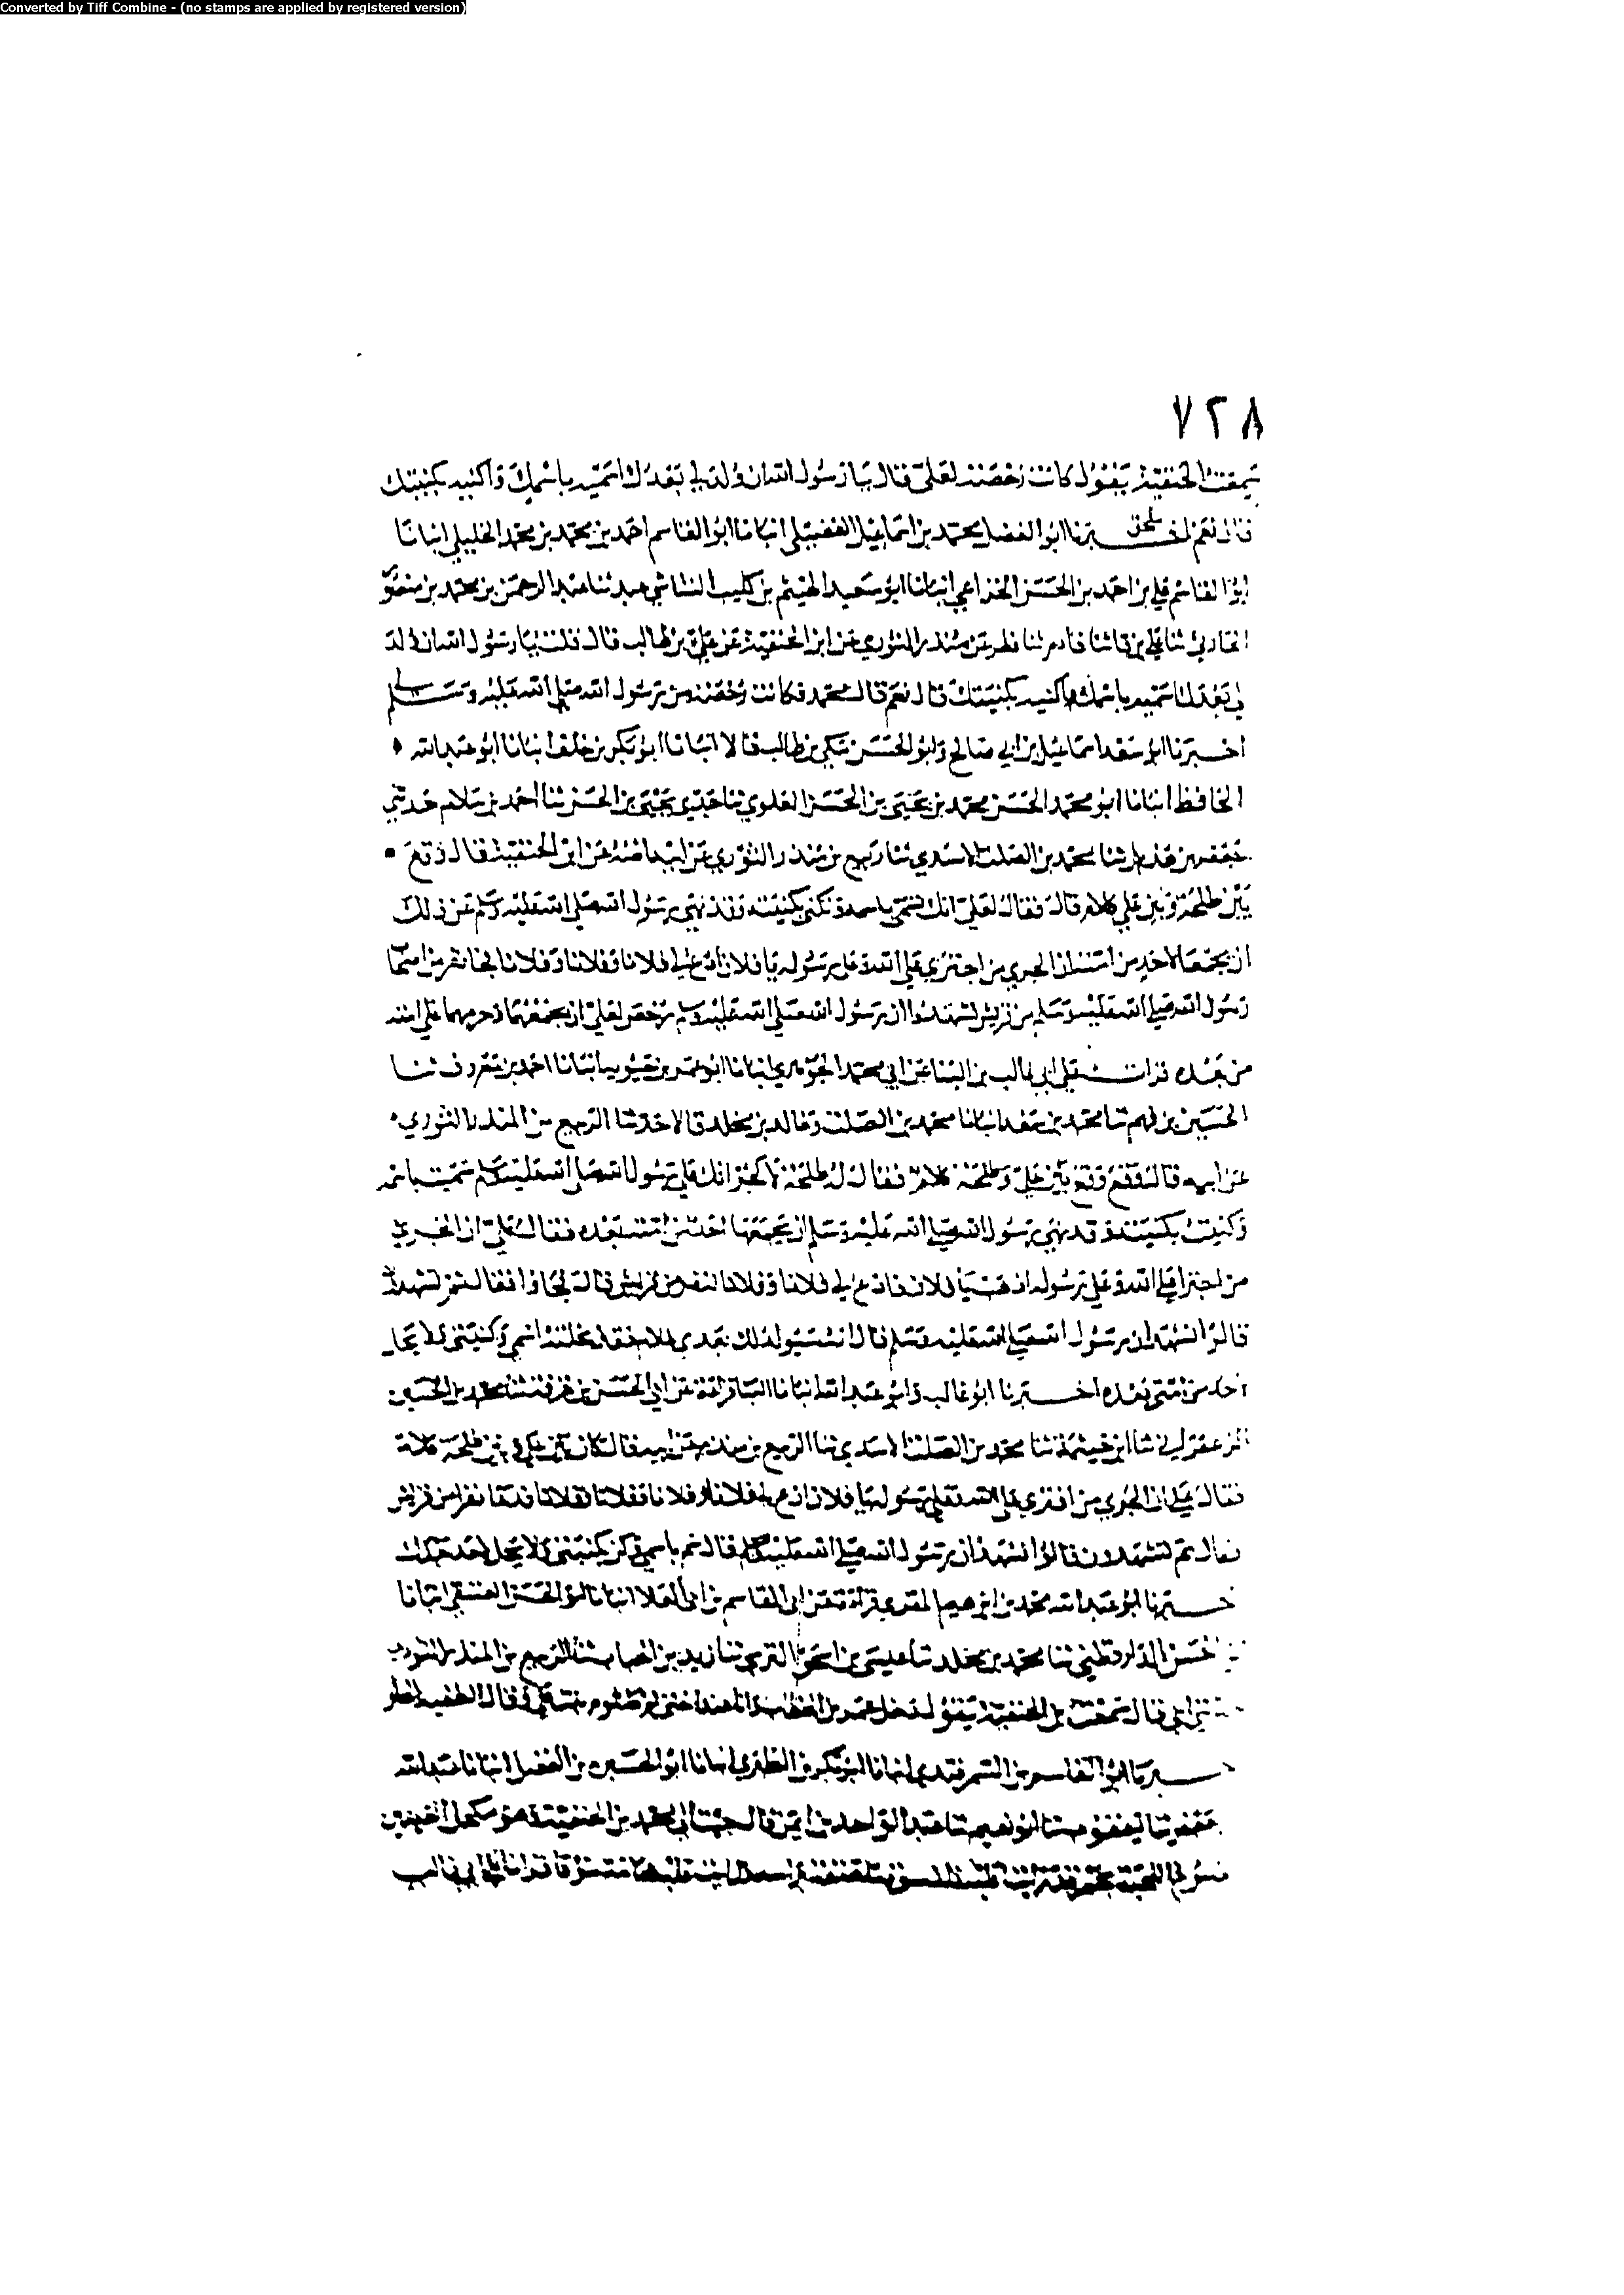 Converted by Tiff Combine - (no stamps are applied by registered version)
٧٢٨
سمعت ابن الحنفية يقول كانت رخصة لعلي قال يا رسول الله ان ولد لي بعدك اسميه باسمك واكنيه بكنيتك
قال نعم اخبرنا ابو الفضل محمد بن اسماعيل الفضيلي انبانا ابو القاسم احمد بن محمد بن محمد الخليلي انبانا
ابو القاسم علي بن احمد بن الحسن الخزاعي انبانا ابو سعيد الهيثم بن كليب الشاشي ثنا عبد الرحمن بن محمد بن منصور
الحارثي ثنا علي بن قادم ثنا فطر عن منذر الثوري عن ابن الحنفية عن علي بن طالب قال قلت يا رسول الله ان ولد
لي بعدك اسميه باسمك واكنيه بكنيتك قال نعم قال محمد فكانت رخصة من رسول الله صلى الله عليه وسلم
اخبرنا ابو سعد اسماعيل بن ابي صالح وابو الحسن مكي بن طالب قالا انبانا ابو بكر بن خلف انبانا ابو عبد الله
الحافظ انبانا ابو محمد الحسن محمد بن يحيى بن الحسن العلوي ثنا جدي يحيى بن الحسن ثنا احمد بن سلام حدثني
جعفر بن هذيل ثنا محمد بن الصلت الاسدي ثنا ربيع بن منذر الثوري عن ابيه عن ابن الحنفية قال وقع
بين طلحة وبين علي كلام قال فقال لعلي انك تسمى باسمه وتكنى بكنيته وقد نهى رسول الله صلى الله عليه وسلم عن ذلك
ان يجتمعا لاحد من امته ان الجري من اجترى على الله وعلى رسوله يا فلان ادع لي فلانا وفلانا وفلانا فجا نفر من اصحاب
رسول الله صلى الله عليه وسلم من قريش شهدوا ان رسول الله صلى الله عليه وسلم رخص لعلي ان يجمعهما وحرمهما على امته
من بعده قرات على ابي غالب بن البنا عن ابي محمد الجوهري انبانا ابو عمر بن حيويه انبانا احمد بن معروف ثنا
الحسين بن فهم ثنا محمد بن سعد انبانا محمد بن الصلت وخالد بن مخلد قالا حدثنا الربيع بن المنذر الثوري
عن ابيه قال وقع بين علي وطلحة كلام فقال له طلحة لا كجرانك على رسول الله صلى الله عليه وسلم سميت باسمه
وكنيت بكنيته وقد نهى رسول الله صلى الله عليه وسلم ان يجمعهما احد من امته بعده فقال علي ان الجري
من اجترا على الله وعلى رسوله اذهب يا فلان فادع لي فلانا وفلانا لنفر من قريش قال فجاوا فقال بم تشهدون
قالوا نشهد ان رسول الله صلى الله عليه وسلم قال انه سيولد لك بعدي غلام فقد نحلته اسمي وكنيتي ولا يحل
لاحد من امتي بعده اخبرنا ابو غالب وابو عبد الله انبانا البنا قراءة عن ابي الحسن بن ثنا محمد بن الحسين
الزعفراني ثنا ابن خيثمة ثنا محمد بن الصلت الاسدي ثنا الربيع بن منذر عن ابيه قال كان بين علي وبين طلحة كلام
فقال علي ان الجري من افترى على الله وعلى رسوله يا فلان ادع لي فلانا وفلانا وفلانا وفلانا فدعا نفرا من قريش
فقال بم تشهدون قالوا نشهد ان رسول الله صلى الله عليه وسلم قال تسم باسمي وكن بكنيتي ولا يحل لاحد بعدك
اخبرنا ابو عبد الله محمد بن ابرهيم المقري قراءة عن ابي القاسم بن ابي العلا انبانا ابو الحسن العتيقي انبانا
الحسن الدارقطني ثنا محمد بن مخلد ثنا عيسى بن اسحق ثنا زيد بن الحباب ثنا الربيع بن المنذر الثوري
ابي قال سمعت بن الحنفية يقول دخل عمر بن الخطاب وانا عند اختي ام كلثوم بنت علي قال
اخبرنا ابو القاسم بن السمرقندي انبانا ابو بكر بن الطبري انبانا ابو الحسين بن الفضل انبانا عبد الله
جعفر ثنا يعقوب ثنا ابو نعيم ثنا عبد الواحد بن ايمن قال جئت الى محمد بن الحنفية وهو مكحل العينين
اللحية قرات على ابي غالب